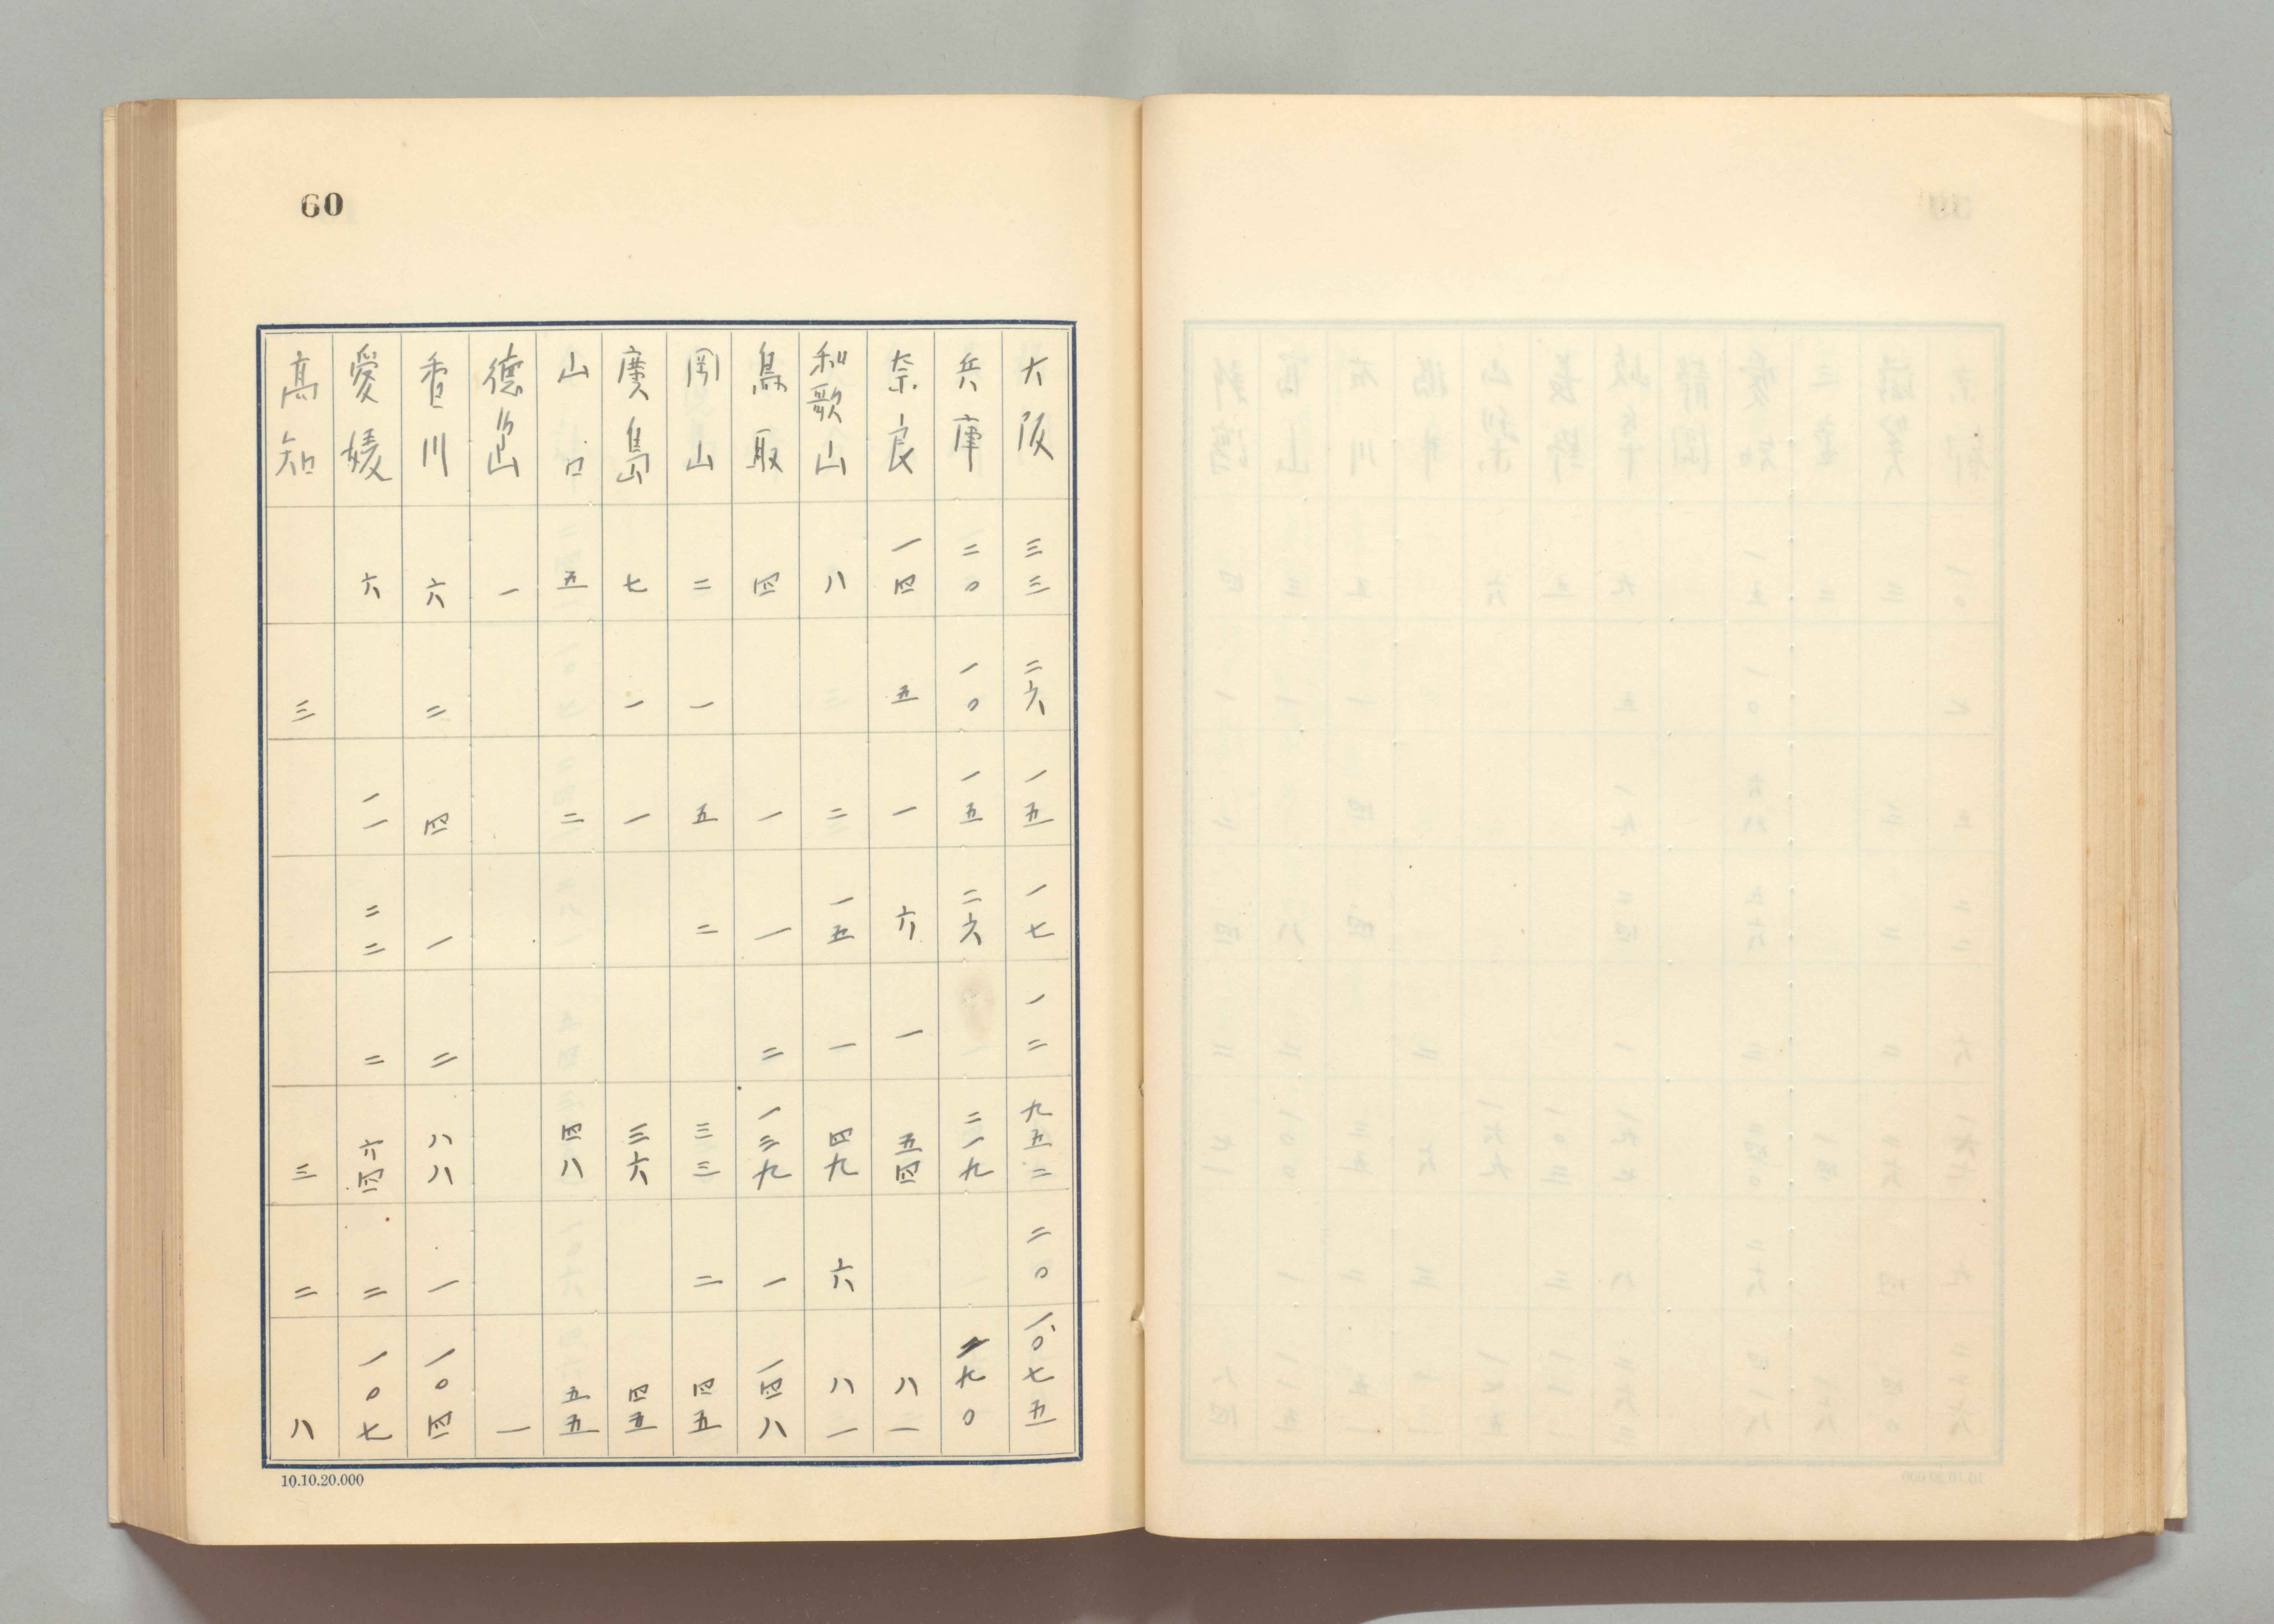 60
大阪 三三 二六 一五 一七 一二 九五二 二〇 一、〇七五
兵庫 二〇 一〇 一五 二六 二一九 二九〇
奈良 一四 五 一 六 一 五四 八一
和歌山 八 二 一五 一 四九 六 八一
鳥取 四 一 一 二 一三九 一 一四八
岡山 二 一 五 二 三三 二 四五
廣島 七 一 一 三六 四五
山口 五 二 四八 五五
德島 一 一
香川 六 二 四 一 二 八八 一 一〇四
愛媛 六 一一 二二 二 六四 二 一〇七
高知 三 三 二 八
10.10.20.000